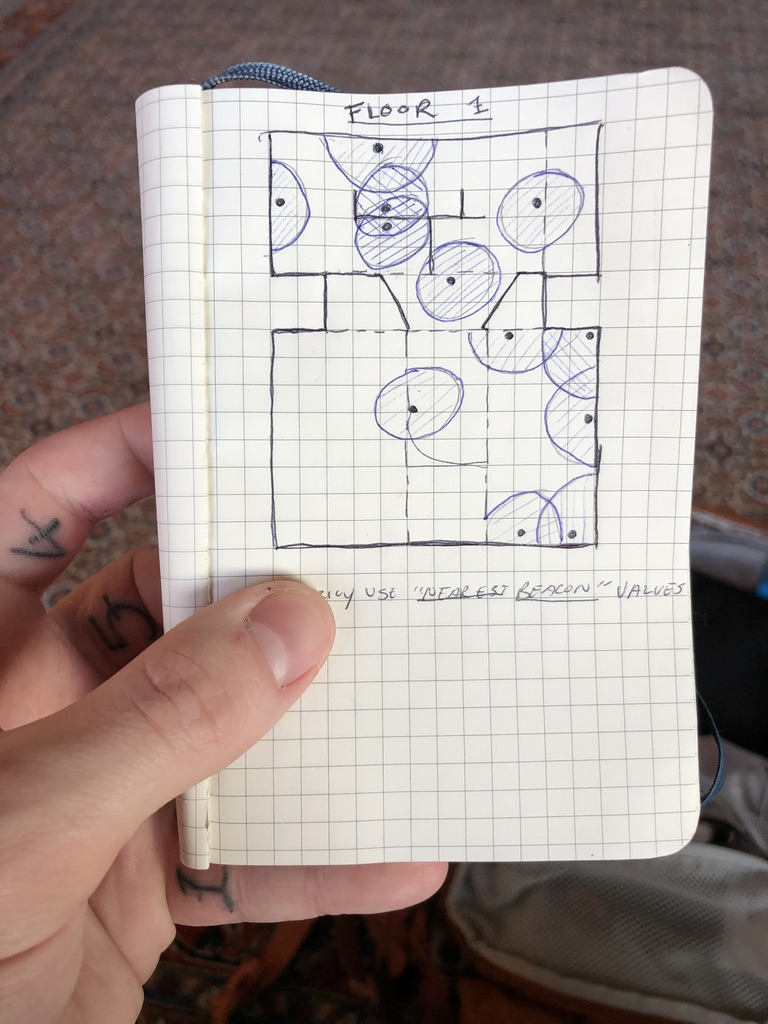 FLOOR 1
USE "NEAREST BEACON" VALUES